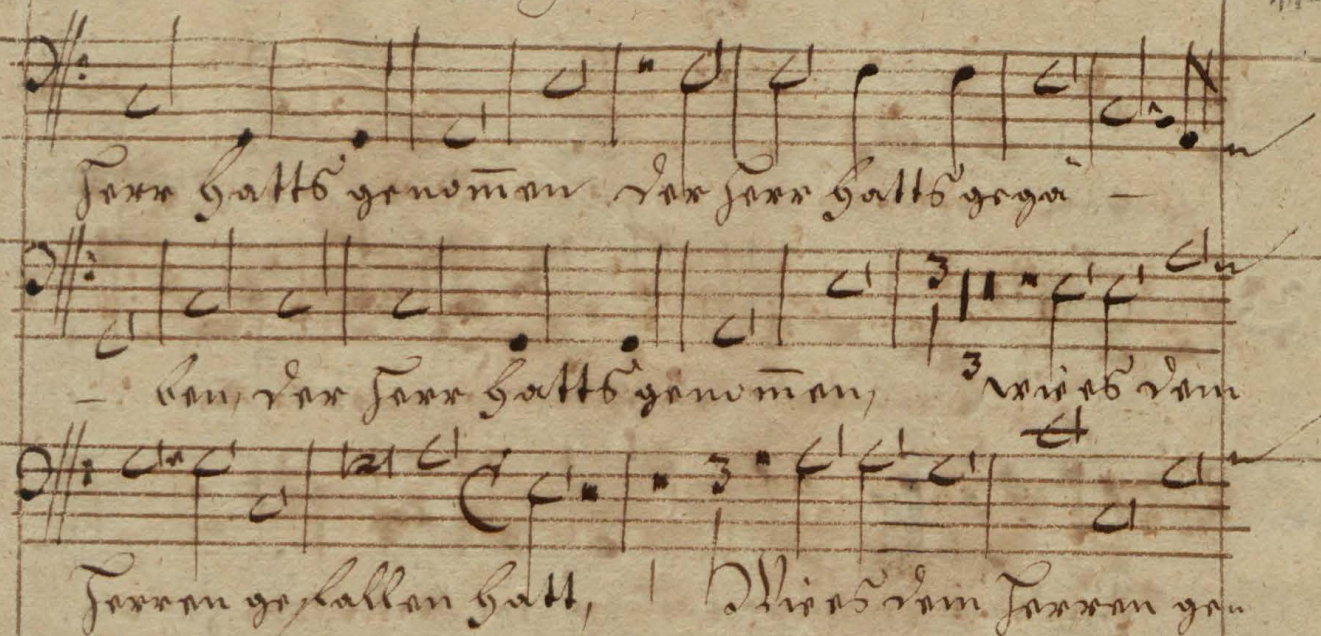 Herr hatts genom̄en der Herr hatts gegä –
– ben, der Herr hatts genom̄en, wie es dem
Herren gefallen hatt, Wie es dem Herren gen